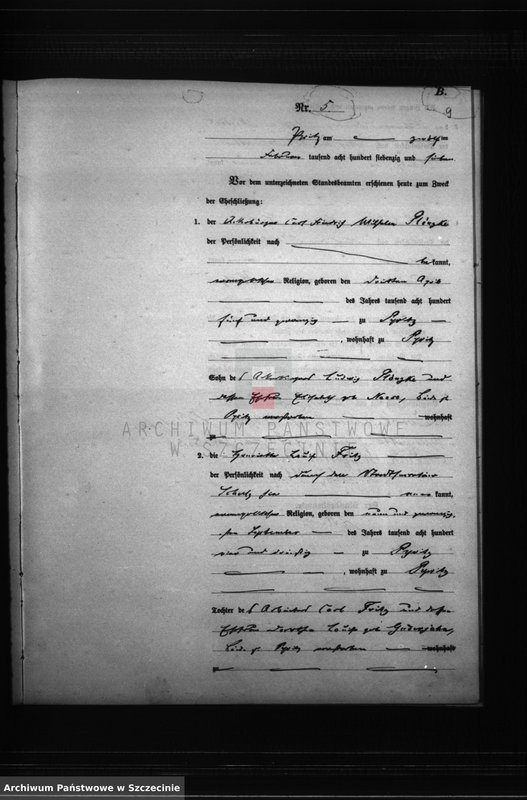 B.
Nr. 5.
9
Pyritz am zwölften
Februar tausend acht hundert siebenzig und sieben
Vor dem unterzeichneten Standesbeamten erschienen heute zum Zweck
der Eheschließung:
1. der Ackerbürger Carl Friedrich Wilhelm
der Persönlichkeit nach
bekannt,
evangelischer Religion, geboren den dritten April
des Jahres tausend acht hundert
fünf und zwanzig zu Pyritz
, wohnhaft zu Pyritz
Sohn des Ackerbürgers Ludwig und
dessen Ehefrau Elisabeth geb
Pyritz verstorben wohnhaft
ARCHIWUM PAŃSTWOWE
W SZCZECINIE
2. die Henriette Louise Fritz
der Persönlichkeit nach durch den
kannt,
evangelischer Religion, geboren den neun und zwanzig
sten September des Jahres tausend acht hundert
vier und dreißig zu Pyritz
, wohnhaft zu Pyritz
Tochter des Arbeiters Carl Fritz und dessen
Ehefrau Dorothea Louise geb
Pyritz verstorben wohnhaft
Archiwum Państwowe w Szczecinie